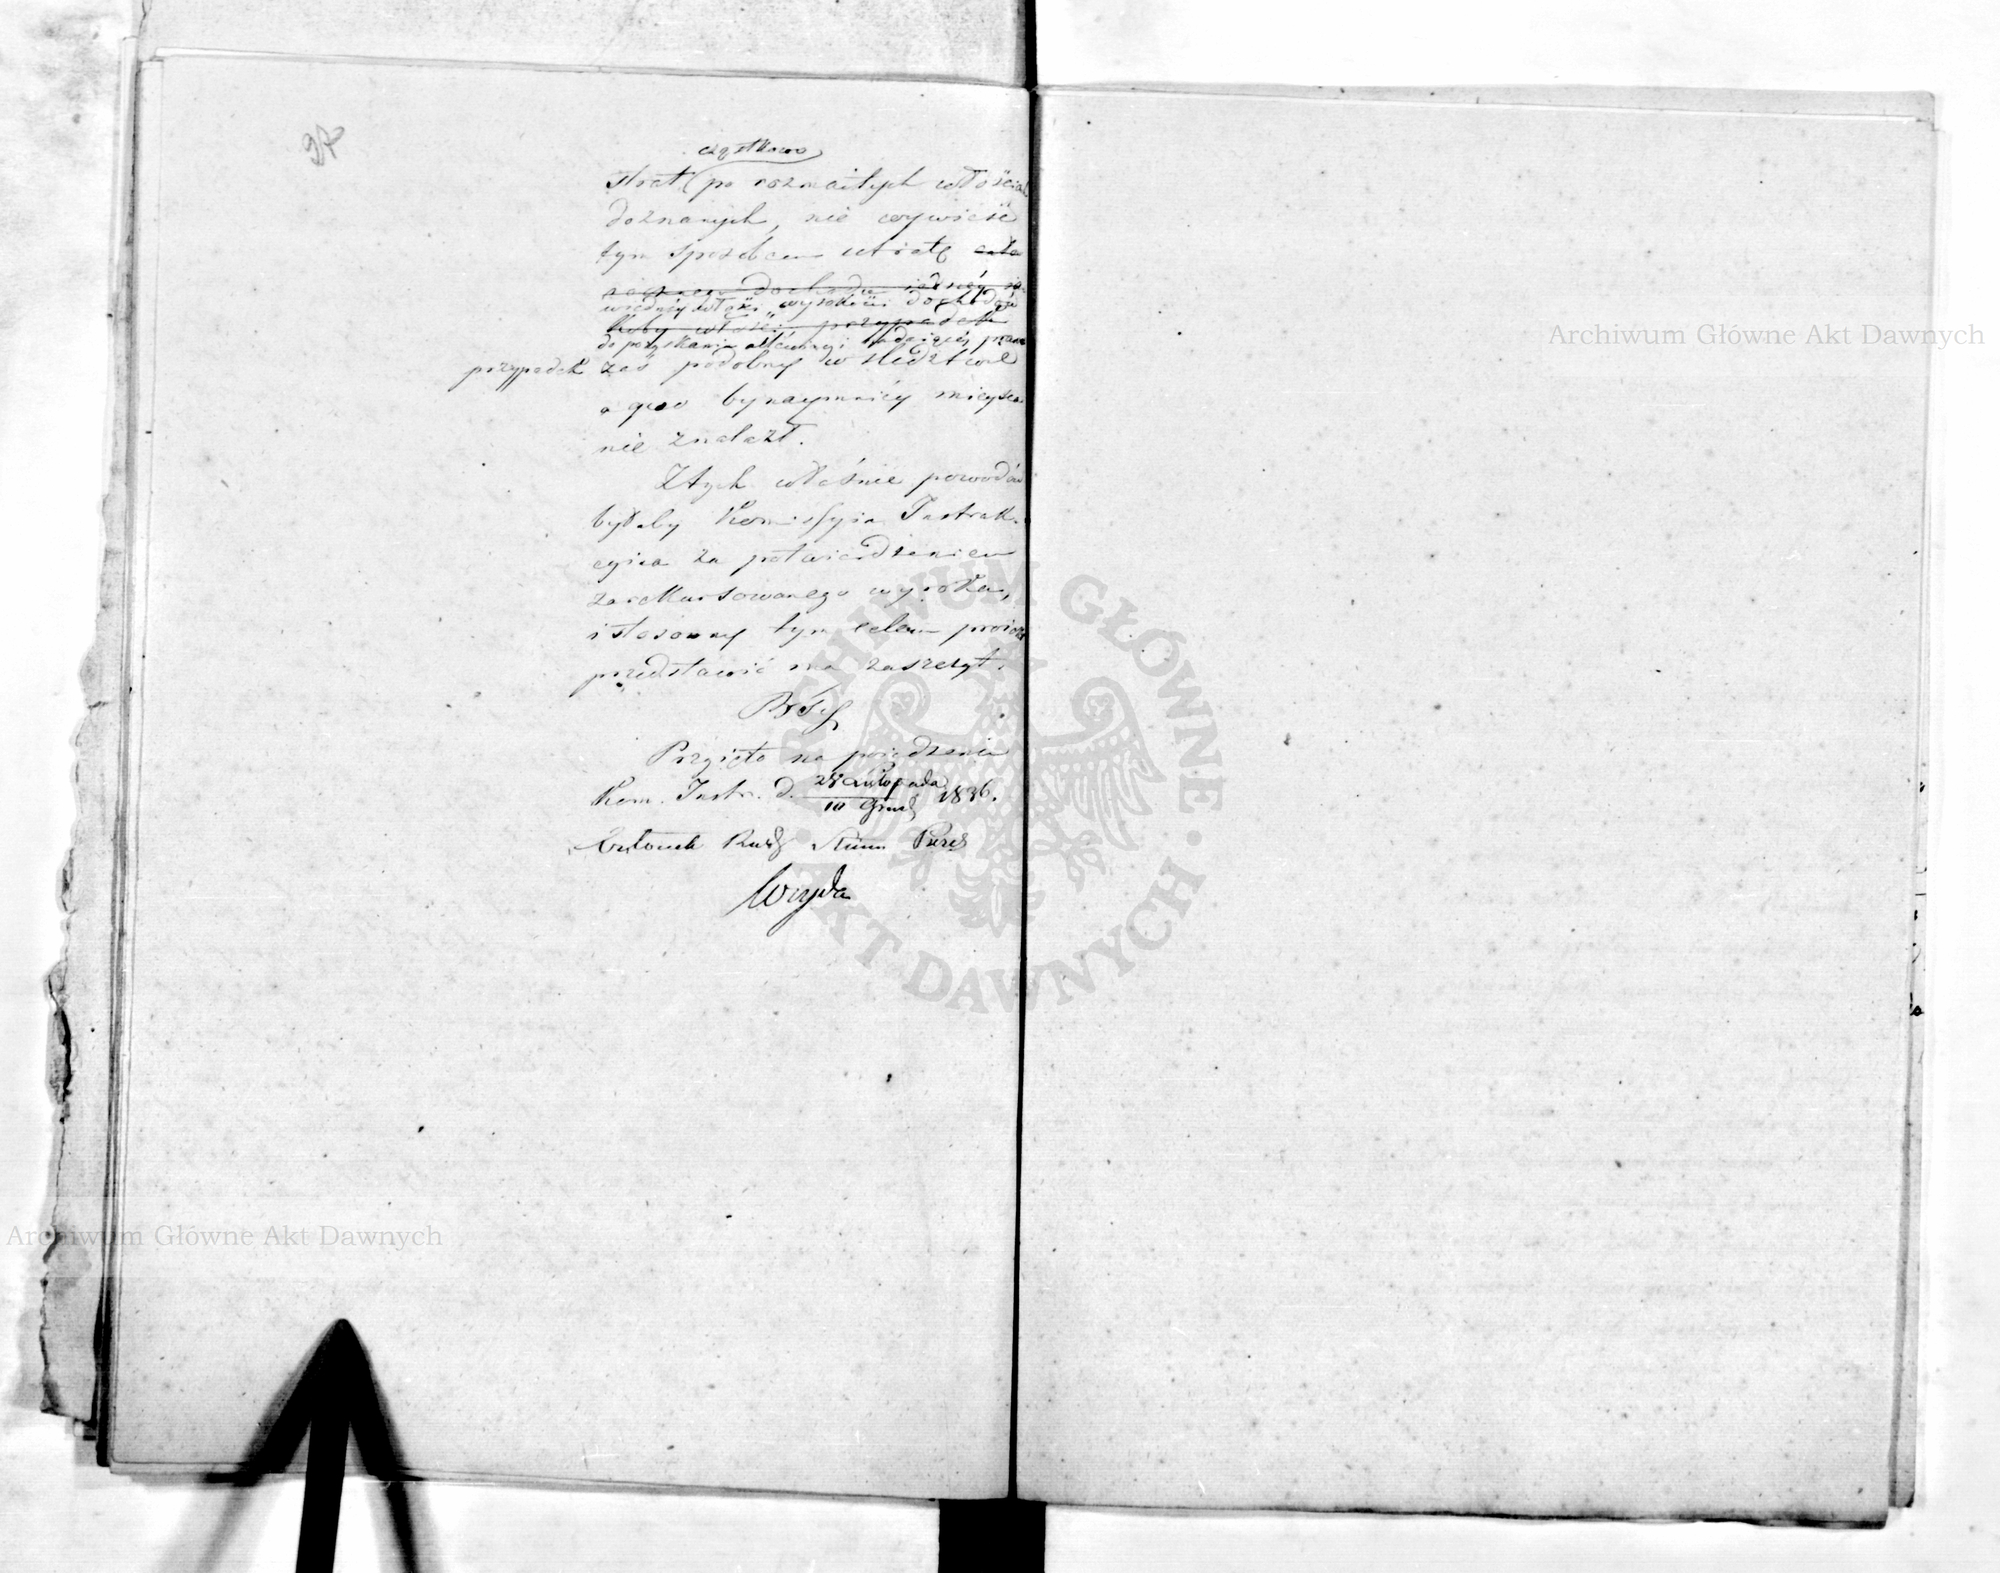 97
częstkowo
strat (po rozmaitych włościach
doznanych, nie wywieść
tym sposobem utratę cało
rocznem dochodu iednéy
wiednéy włości wysokości dochodów
włości przypadek
do pozyskania prawa
przypadek zaś podobny w śledztwie
a quo bynaymniéy mieysca
nie znalazł.
Z tych właśnie powodów
byłaby Kommissyia Instruk-
cyina za potwierdzeniem
zarekursowanego wyroku,
i stosowny tym celem proiekt
przedstawić ma zaszczyt.
Przyięto na posiedzeniu
Kom. Instr. d. 28 Listopada
10 Grud 1836.
Członek Rady Stanu Prezes
Woyda
Archiwum Główne Akt Dawnych
Archiwum Główne Akt Dawnych
ARCHIWUM GŁÓWNE AKT DAWNYCH